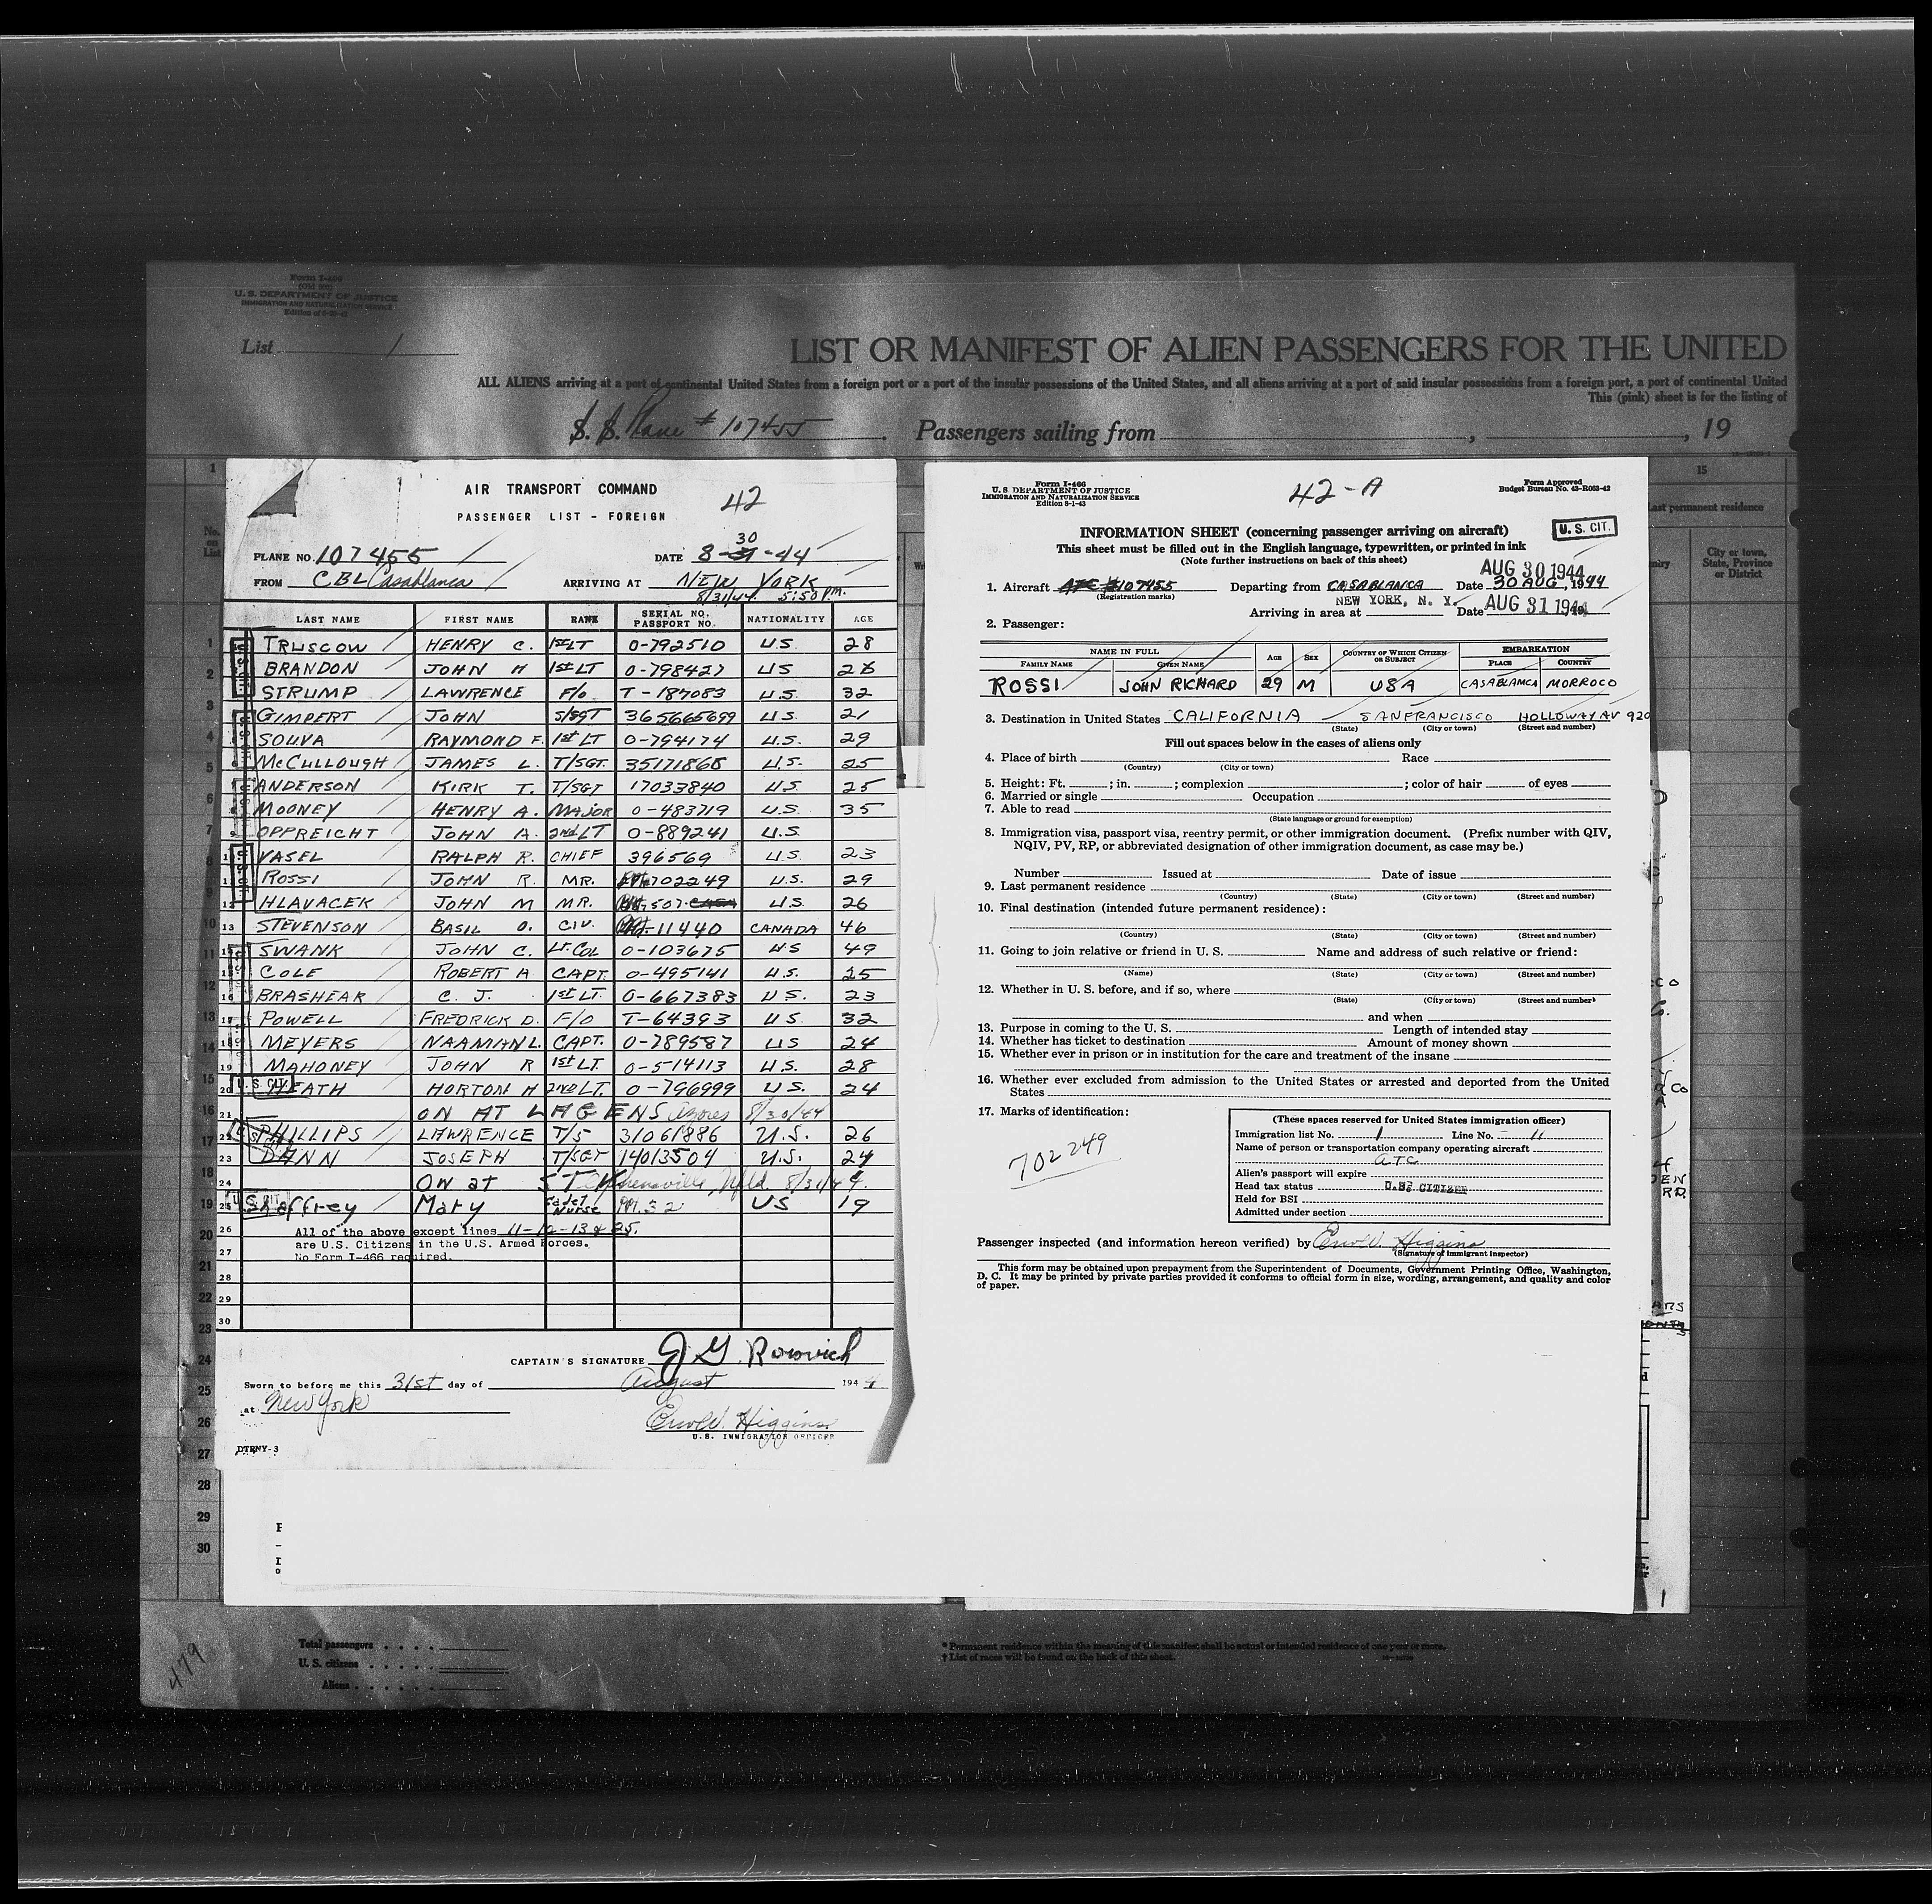 Form I-466
(Old 500)
U. S. DEPARTMENT OF JUSTICE
IMMIGRATION AND NATURALIZATION SERVICE
List 1
LIST OR MANIFEST OF ALIEN PASSENGERS FOR THE UNITED
ALL ALIENS arriving at a port of continental United States from a foreign port or a port of the insular possessions of the United States, and all aliens arriving at a port of said insular possessions from a foreign port, a port of continental United
This (pink) sheet is for the listing of
S. S. Plane # 107455 . Passengers sailing from , , 19
AIR TRANSPORT COMMAND 42
PASSENGER LIST - FOREIGN
PLANE NO. 107455 DATE 8-30-44
FROM CBL Casablanca ARRIVING AT NEW YORK
8/31/44 5:50 P.m.
LAST NAME FIRST NAME RANK SERIAL NO. PASSPORT NO. NATIONALITY AGE
1 TRUSCOW HENRY C. 1st LT 0-792510 U.S. 28
2 BRANDON JOHN H 1st LT 0-798427 US 26
3 STRUMP LAWRENCE F/O T-187083 U.S. 32
4 GIMPERT JOHN S/SGT 365665699 U.S. 21
5 SOUVA RAYMOND F. 1st LT 0-794174 U.S. 29
6 McCULLOUGH JAMES L. T/SGT. 35171868 U.S. 25
7 ANDERSON KIRK T. T/SGT 17033840 U.S 25
8 MOONEY HENRY A. MAJOR 0-483719 U.S 35
9 OPPREICHT JOHN A. 2nd LT 0-889241 U.S
10 VASEL RALPH R. CHIEF 396569 U.S. 23
11 ROSSI JOHN R. MR. 702249 U.S. 29
12 HLAVACEK JOHN M MR. 507 U.S. 26
13 STEVENSON BASIL O. CIV. 11440 CANADA 46
14 SWANK JOHN C. LT. COL 0-103675 US 49
15 COLE ROBERT A CAPT. 0-495141 U.S. 25
16 BRASHEAR C. J. 1st LT. 0-667383 U.S. 23
17 POWELL FREDRICK D. F/O T-64393 U.S 32
18 MEYERS NAAMAN L. CAPT. 0-789587 US 24
19 MAHONEY JOHN R 1st LT. 0-514113 U.S. 28
20 HEATH HORTON H 2ND LT. 0-796999 U.S. 24
21 ON AT LAGENS Azores 8/30/44
22 PHILLIPS LAWRENCE T/5 31061886 U.S. 26
23 DANN JOSEPH T/SGT 14013504 U.S. 24
24 ON at STephensville, Nfld. 8/31/44
25 Shaffrey Mary Cadet Nurse US 19
26 All of the above except lines 11-12-13 & 25.
are U.S. Citizens in the U.S. Armed Forces.
27 No Form I-466 required.
28
29
30
CAPTAIN'S SIGNATURE J G Rorovich
Sworn to before me this 31st day of August 194 4
at New York
Erwol W. Higgins
U.S. IMMIGRATION OFFICER
DTRNY-3
Form I-466
U. S DEPARTMENT OF JUSTICE
IMMIGRATION AND NATURALIZATION SERVICE
Edition 8-1-43
42-A
Form Approved
Budget Bureau No. 43-R063-42
INFORMATION SHEET (concerning passenger arriving on aircraft) U. S. CIT.
This sheet must be filled out in the English language, typewritten, or printed in ink
(Note further instructions on back of this sheet)
AUG 30 1944
1. Aircraft ATC 107455 Departing from CASABLANCA Date 30 AUG, 1944
(Registration marks)
NEW YORK, N. Y.
Arriving in area at Date AUG 31 1944
2. Passenger:
NAME IN FULL AGE SEX COUNTRY OF WHICH CITIZEN OR SUBJECT EMBARKATION
FAMILY NAME GIVEN NAME PLACE COUNTRY
ROSSI JOHN RICHARD 29 M USA CASABLANCA MORROCO
3. Destination in United States CALIFORNIA SANFRANCISCO HOLLOWAY AV 920
(State) (City or town) (Street and number)
Fill out spaces below in the cases of aliens only
4. Place of birth Race
(Country) (City or town)
5. Height: Ft. ; in. ; complexion ; color of hair of eyes
6. Married or single Occupation
7. Able to read
(State language or ground for exemption)
8. Immigration visa, passport visa, reentry permit, or other immigration document. (Prefix number with QIV,
NQIV, PV, RP, or abbreviated designation of other immigration document, as case may be.)
Number Issued at Date of issue
9. Last permanent residence
(Country) (State) (City or town) (Street and number)
10. Final destination (intended future permanent residence):
(Country) (State) (City or town) (Street and number)
11. Going to join relative or friend in U. S. Name and address of such relative or friend:
(Name) (State) (City or town) (Street and number)
12. Whether in U. S. before, and if so, where
(State) (City or town) (Street and number)
and when
13. Purpose in coming to the U. S. Length of intended stay
14. Whether has ticket to destination Amount of money shown
15. Whether ever in prison or in institution for the care and treatment of the insane
16. Whether ever excluded from admission to the United States or arrested and deported from the United
States
17. Marks of identification:
702249
(These spaces reserved for United States immigration officer)
Immigration list No. 1 Line No. 11
Name of person or transportation company operating aircraft
ATC
Alien's passport will expire
Head tax status U.S. CITIZEN
Held for BSI
Admitted under section
Passenger inspected (and information hereon verified) by Erwol W. Higgins
(Signature of immigrant inspector)
This form may be obtained upon prepayment from the Superintendent of Documents, Government Printing Office, Washington,
D. C. It may be printed by private parties provided it conforms to official form in size, wording, arrangement, and quality and color
of paper.
15
Last permanent residence
City or town, State, Province or District
Total passengers
U. S. citizens
Aliens
* Permanent residence within the meaning of this manifest shall be actual or intended residence of one year or more.
† List of races will be found on the back of this sheet.
479